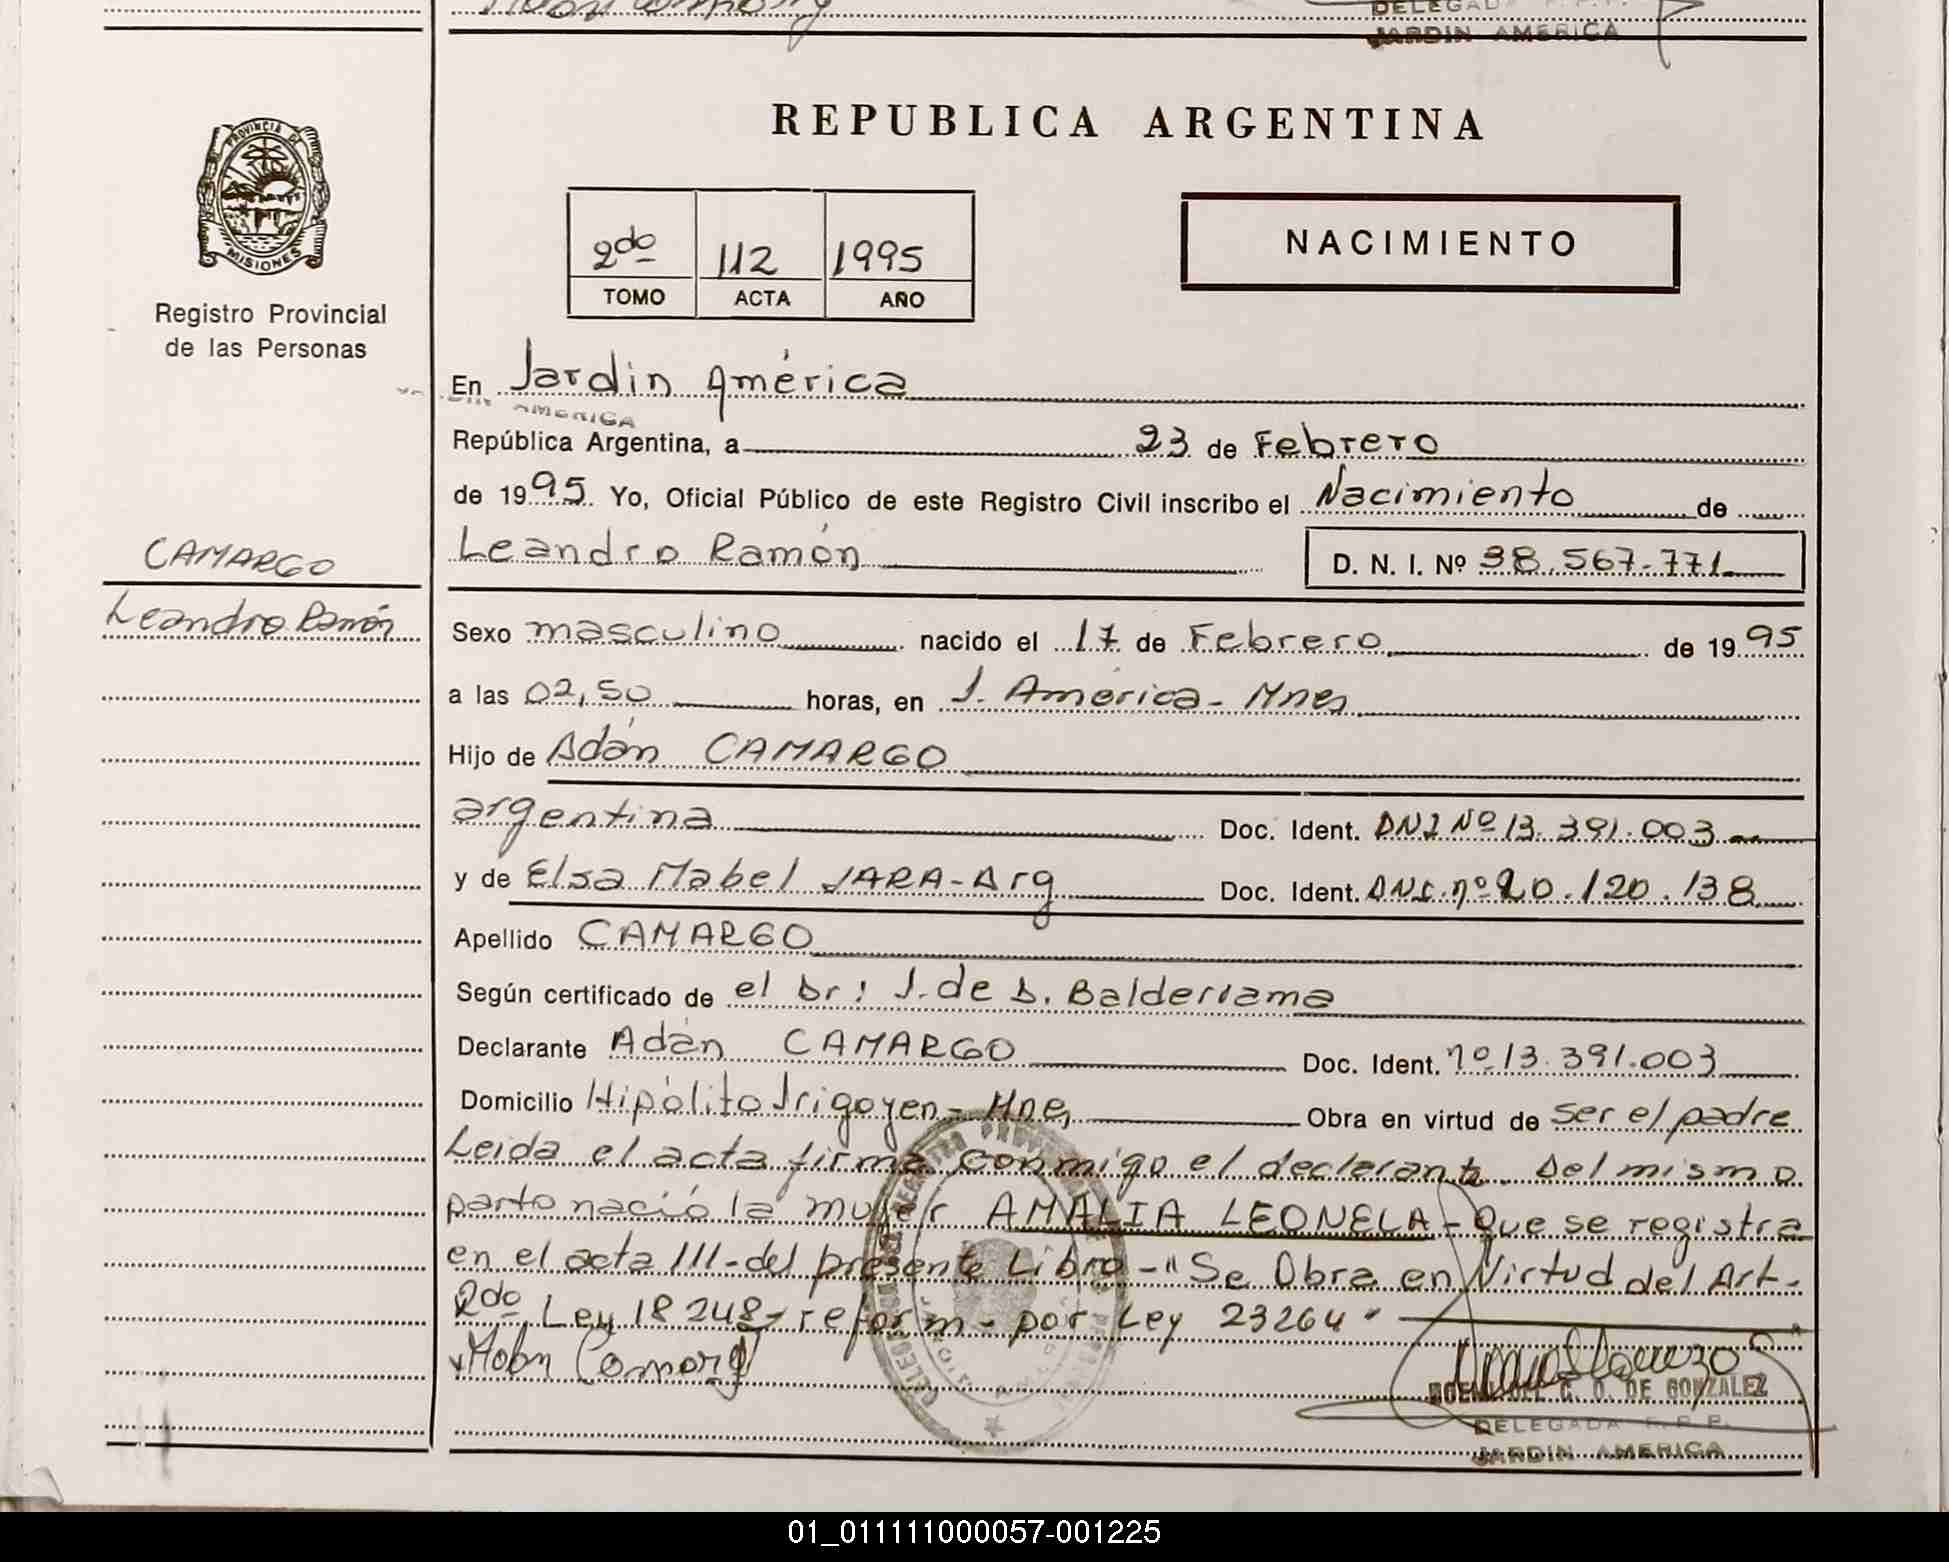 DELEGADA R.P.P.
JARDIN AMERICA
PROVINCIA DE
MISIONES
Registro Provincial
de las Personas
REPUBLICA ARGENTINA
2do 112 1995
TOMO ACTA AÑO
NACIMIENTO
En Jardin América
AMERICA
República Argentina, a 23 de Febrero
de 1995. Yo, Oficial Público de este Registro Civil inscribo el Nacimiento de
Leandro Ramón D. N. I. Nº 38.567-771
CAMARGO
Leandro Ramón
Sexo masculino nacido el 17 de Febrero de 1995
a las 02,50 horas, en J. América - Mnes
Hijo de Adán CAMARGO
argentina Doc. Ident. DNI Nº 13.391.003
y de Elsa Mabel JARA-Arg Doc. Ident. DNI. nº 20.120.138
Apellido CAMARGO
Según certificado de el Dr: J. de D. Balderrama
Declarante Adán CAMARGO Doc. Ident. nº 13.391.003
Domicilio Hipólito Irigoyen - Mnes Obra en virtud de ser el padre
Leida el acta firma conmigo el declarante. Del mismo
parto nació la mujer AMALIA LEONELA - Que se registra
en el acta 111-del presente Libro - "Se Obra en Virtud del Art.
2do, Ley 18248- reform- por Ley 23264"
DE GONZALEZ
DELEGADA R.P.P.
JARDIN AMERICA
01_011111000057-001225